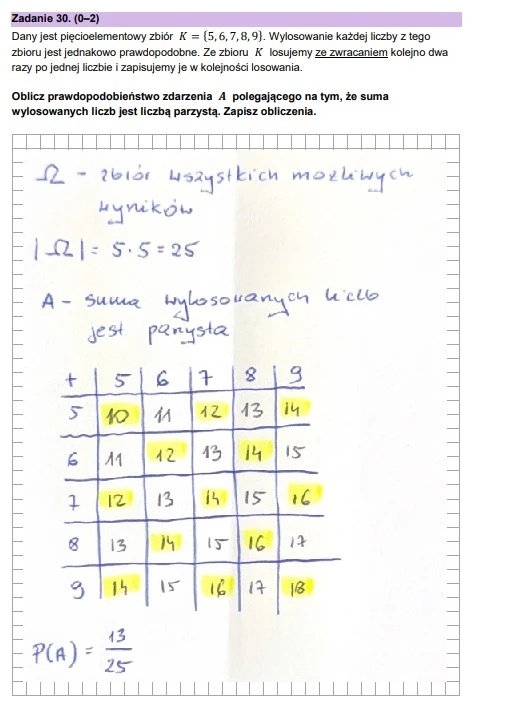 Zadanie 30. (0–2)
Dany jest pięcioelementowy zbiór K = {5, 6, 7, 8, 9}. Wylosowanie każdej liczby z tego
zbioru jest jednakowo prawdopodobne. Ze zbioru K losujemy ze zwracaniem kolejno dwa
razy po jednej liczbie i zapisujemy je w kolejności losowania.
Oblicz prawdopodobieństwo zdarzenia A polegającego na tym, że suma
wylosowanych liczb jest liczbą parzystą. Zapisz obliczenia.
Ω - zbiór wszystkich możliwych
wyników
|Ω| = 5·5=25
A - suma wylosowanych liczb
jest parzysta
+ 5 6 7 8 9
5 10 11 12 13 14
6 11 12 13 14 15
7 12 13 14 15 16
8 13 14 15 16 17
9 14 15 16 17 18
P(A) = 13/25